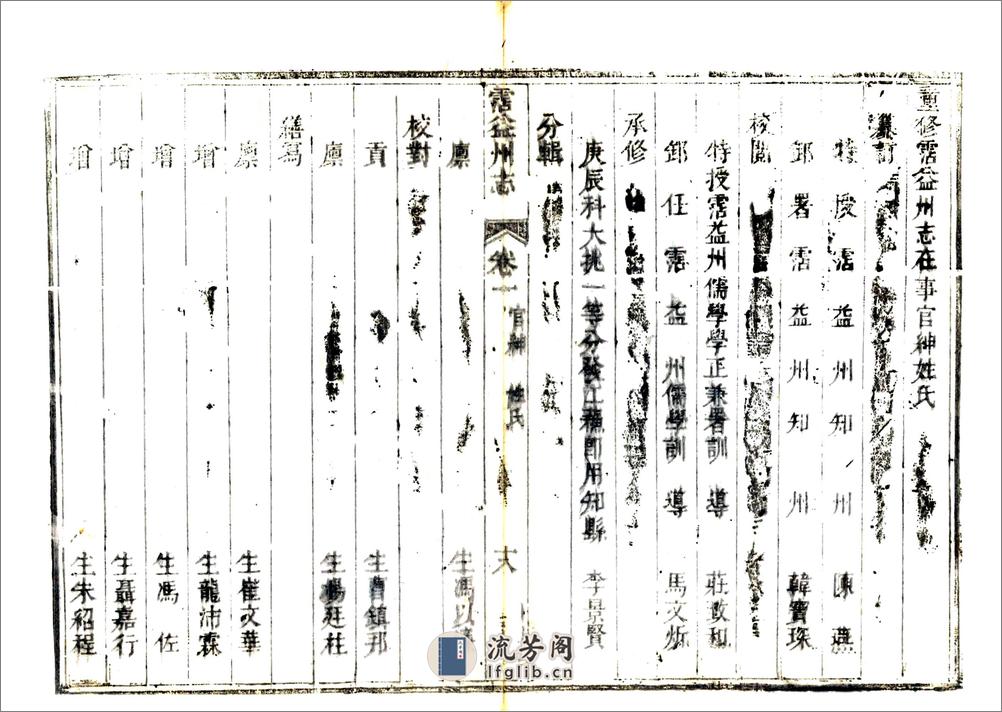 重修霑益州志在事官紳姓氏
纂訂
特授霑益州知州 陳燕
卸署霑益州知州 韓寶琛
校閱
特授霑益州儒學學正兼署訓導 莊政和
卸任霑益州儒學訓導 馬文炳
承修
庚辰科大挑一等分發江蘇即用知縣 李景賢
分輯
霑益州志 卷一 官紳姓氏
廪生馮以
校對
貢生曹鎮邦
廪生楊廷柱
繕寫
廪生崔文華
增生龍沛霖
增生馮佐
增生聶嘉行
增生朱紹程
流芳阁
lfglib.cn